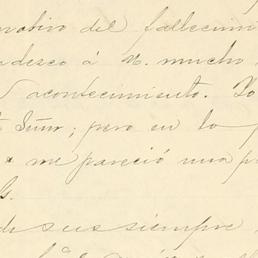 del fallecimi
á V. mucho
acontecimiento. Yo
Señor; pero en lo
me pareció una p
V.
de sus siempre